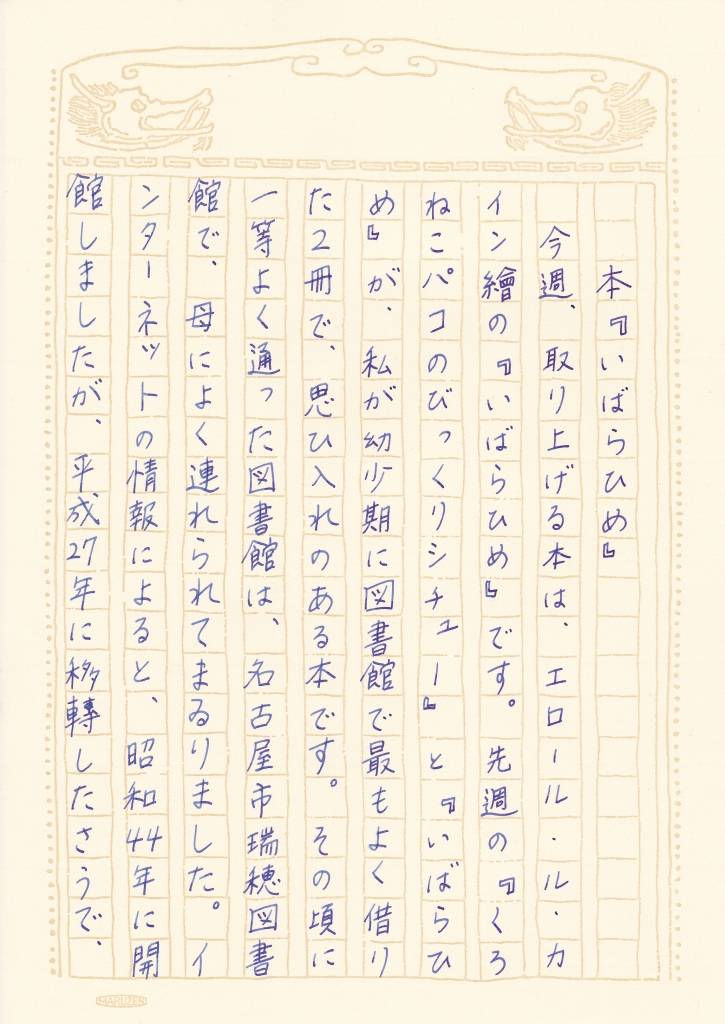 本『いばらひめ』
今週、取り上げる本は、エロール・ル・カ
イン繪の『いばらひめ』です。先週の『くろ
ねこパコのびっくりシチュー』と『いばらひ
め』が、私が幼少期に図書館で最もよく借り
た2冊で、思ひ入れのある本です。その頃に
一等よく通った図書館は、名古屋市瑞穂図書
館で、母によく連れられてまゐりました。イ
ンターネットの情報によると、昭和44年に開
館しましたが、平成27年に移轉したさうで、
MARUZEN